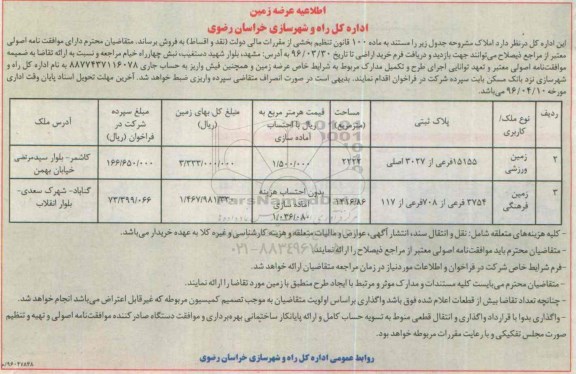 اطلاعیه عرضه زمین
اداره کل راه و شهرسازی خراسان رضوی
این اداره کل درنظر دارد املاک مشروحه جدول زیر را مستند به ماده ۱۰۰ قانون تنظیم بخشی از مقررات مالی دولت (نقد و اقساط) به فروش برساند. متقاضیان محترم دارای موافقت نامه اصولی
معتبر از مراجع ذیصلاح می‌توانند جهت بازدید و دریافت فرم خرید اراضی تا تاریخ ۹۶/۰۳/۳۰ به آدرس: مشهد، بلوار شهید دستغیب، نبش چهارراه خیام مراجعه و نسبت به ارائه تقاضا به ضمیمه
موافقت‌نامه اصولی معتبر و تعهد توانایی اجرای طرح و تکمیل مدارک مربوط به شرایط خاص عرضه زمین و همچنین فیش واریز به حساب جاری ۸۸۷۷۴۳۷۱۱۶۰۷۸ به نام اداره کل راه و
شهرسازی نزد بانک مسکن بابت سپرده شرکت در فراخوان اقدام نمایند. بدیهی است در صورت انصراف متقاضی سپرده واریزی ضبط خواهد شد. آخرین مهلت تحویل اسناد پایان وقت اداری
مورخ ۹۶/۰۴/۱۰ می‌باشد.
ردیف | نوع ملک/ کاربری | پلاک ثبتی | مساحت (مترمربع) | قیمت هرمتر مربع به ریال با احتساب آماده سازی | مبلغ کل بهای زمین (ریال) | مبلغ سپرده شرکت در فراخوان (ریال) | آدرس ملک
۲ | زمین ورزشی | ۱۵۱۵۵فرعی از ۳۰۲۷ اصلی | ۲۲۲۲ | ۱/۵۰۰/۰۰۰ | ۳/۳۳۳/۰۰۰/۰۰۰ | ۱۶۶/۶۵۰/۰۰۰ | کاشمر- بلوار سیدمرتضی خیابان بهمن
۳ | زمین فرهنگی | ۳۷۵۴ فرعی از ۷۰۸فرعی از ۱۱۷ | ۱۴۱۶/۸۶ | بدون احتساب هزینه آماده سازی ۱/۰۳۶/۰۸۰ | ۱/۴۶۷/۹۸۱/۳۳۰ | ۷۳/۳۹۹/۰۶۶ | گناباد- شهرک سعدی- بلوار انقلاب
- کلیه هزینه‌های متعلقه شامل: نقل و انتقال سند، انتشار آگهی، عوارض و مالیات متعلقه و هزینه کارشناسی و غیره کلا به عهده خریدار می‌باشد.
- متقاضیان محترم باید موافقت‌نامه اصولی معتبر از مراجع ذیصلاح را ارائه نمایند.
-فرم شرایط خاص شرکت در فراخوان و اطلاعات مورد نیاز در زمان مراجعه متقاضیان ارائه خواهد شد.
- متقاضیان محترم می‌بایست کلیه مستندات و مدارک موثر و مرتبط با ایجاد طرح منطبق با زمین مورد تقاضا را ارائه نمایند.
- چنانچه تعداد تقاضا بیش از قطعات اعلام شده فوق باشد واگذاری براساس اولویت متقاضیان به موجب تصمیم کمیسیون مربوطه که غیرقابل اعتراض می‌باشد انجام خواهد شد.
- واگذاری بدوا با قرارداد واگذاری و انتقال قطعی منوط به تسویه حساب کامل و ارائه پایانکار ساختمانی بهره‌برداری و موافقت دستگاه صادر کننده موافقت‌نامه اصولی و تهیه و تنظیم
صورت مجلس تفکیکی و با رعایت مقررات مربوطه خواهد بود.
روابط عمومی اداره کل راه و شهرسازی خراسان رضوی